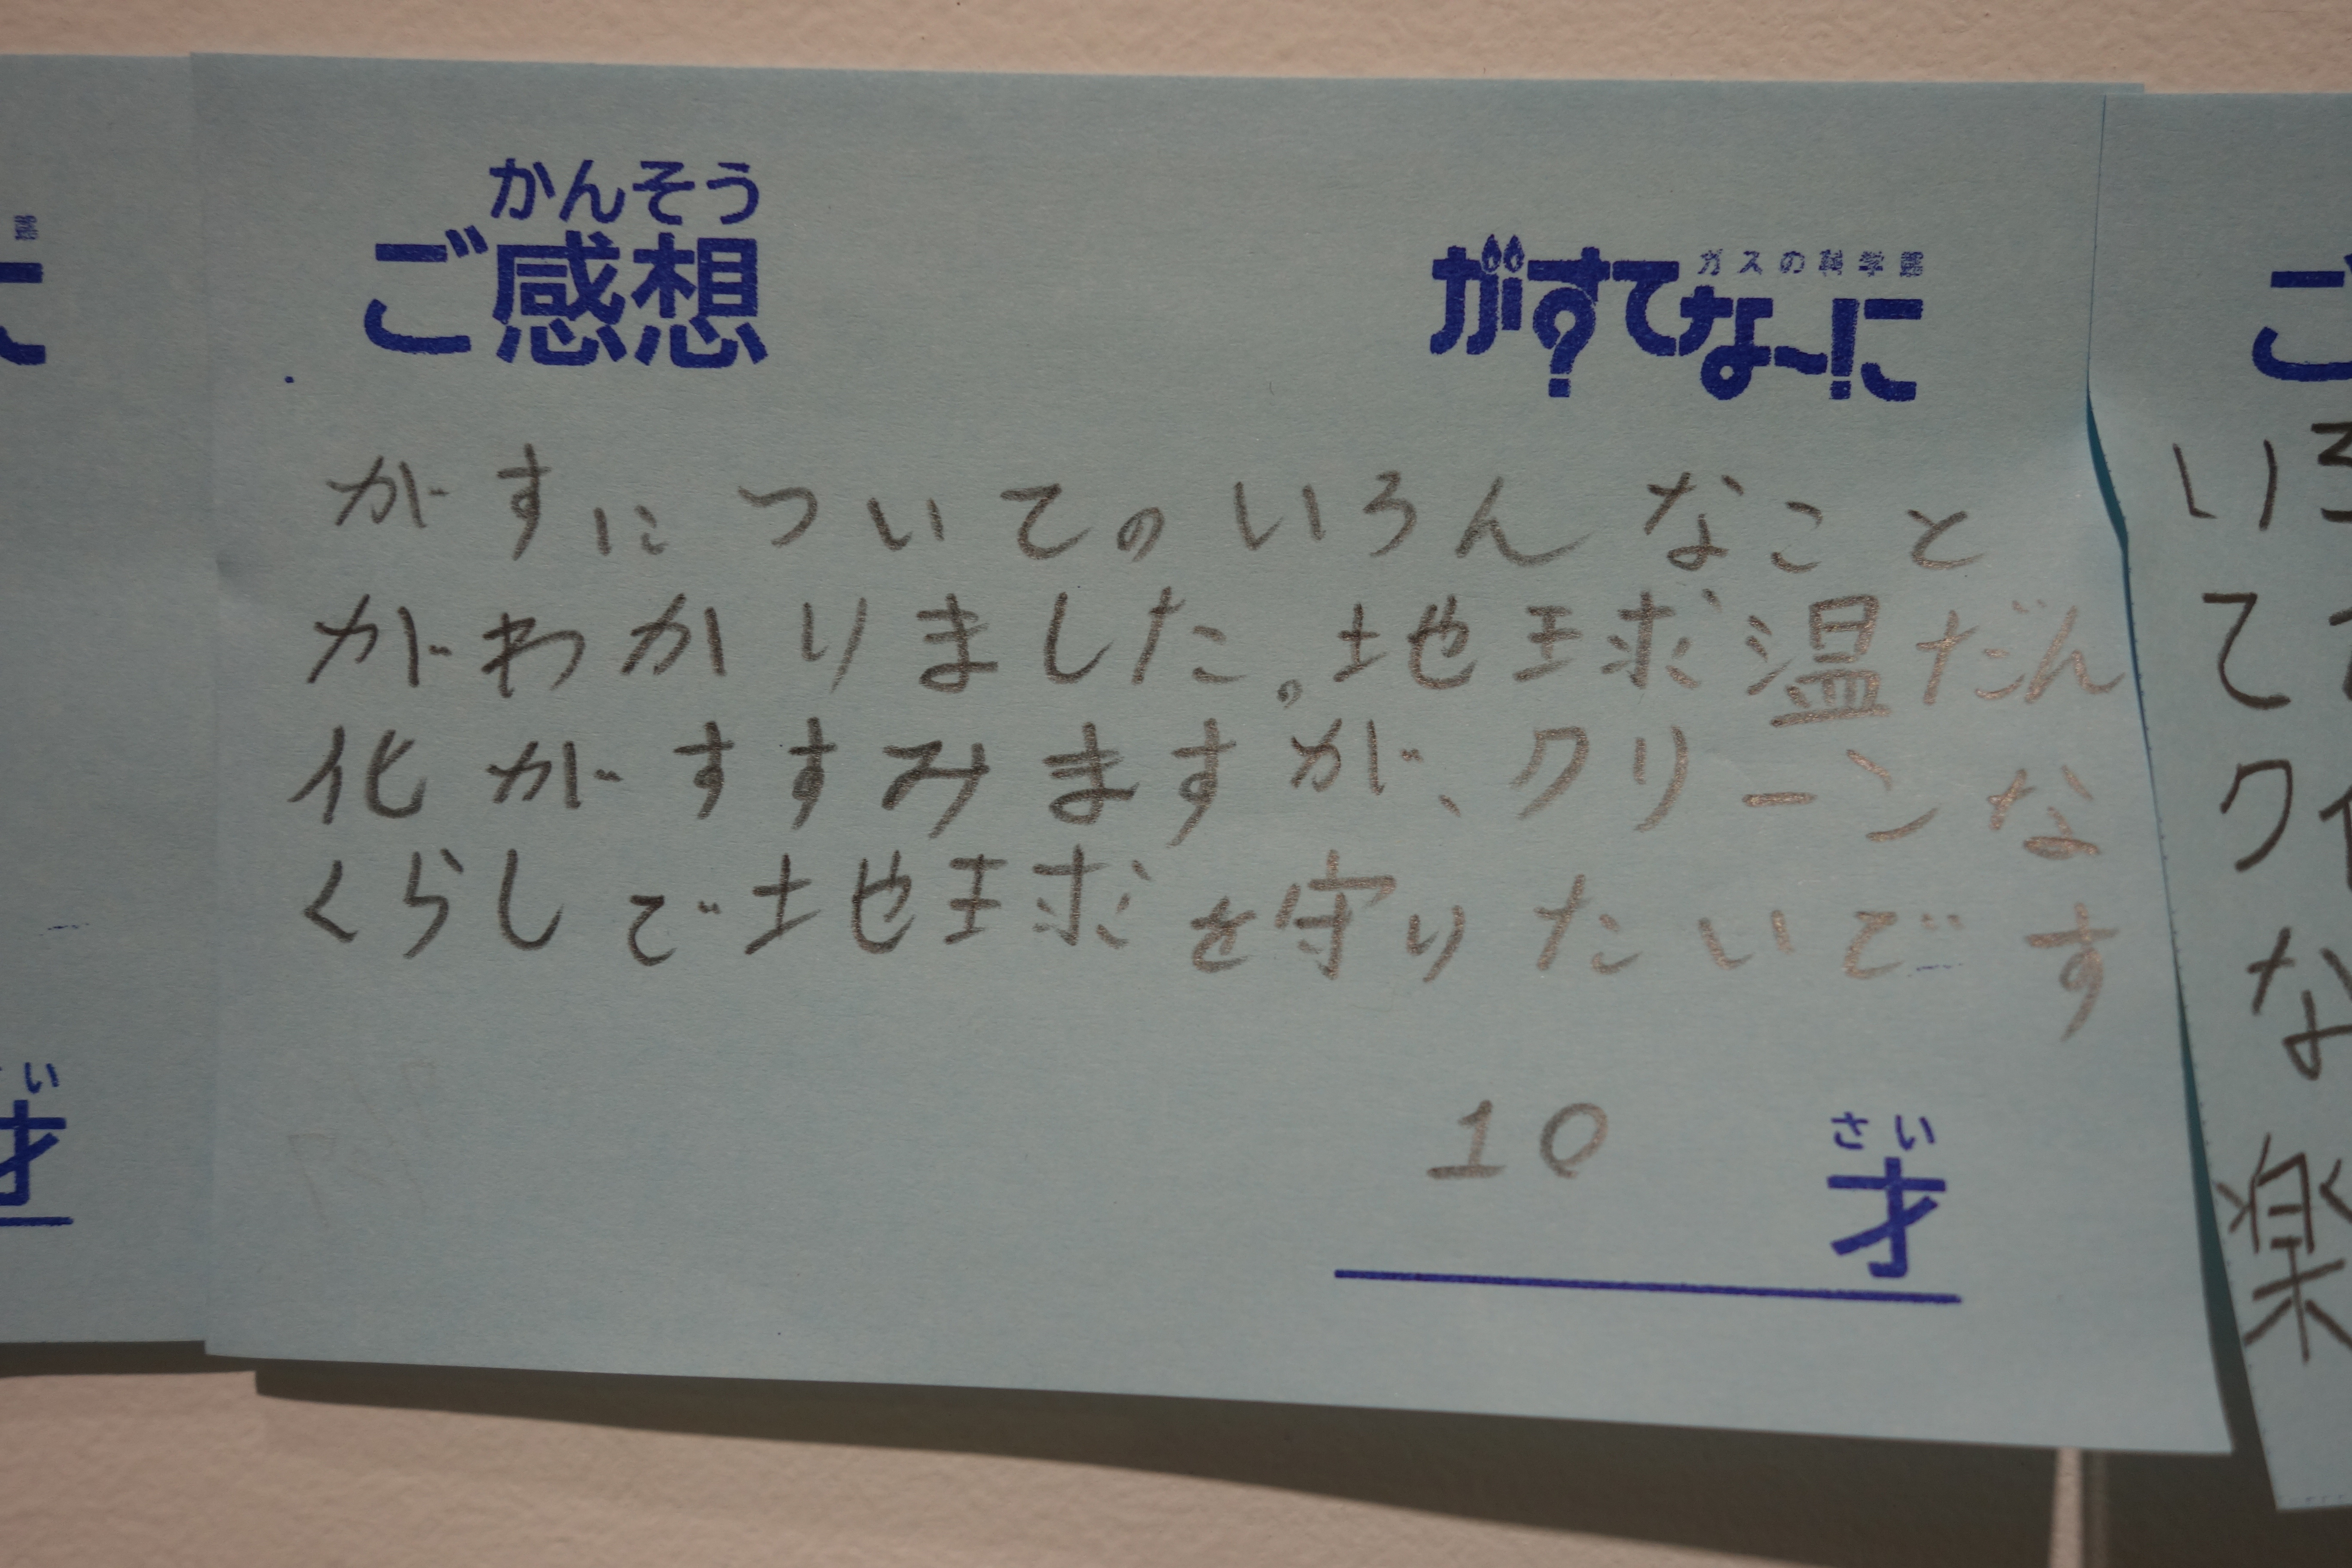 かんそう
ご感想
ガスの科学館
がすてなーに
がすについてのいろんなこと
がわかりました。地球温だん
化がすすみますが、クリーンな
くらしで地球を守りたいです
10
さい
才
い
才
ご
い
て
ク
な
楽